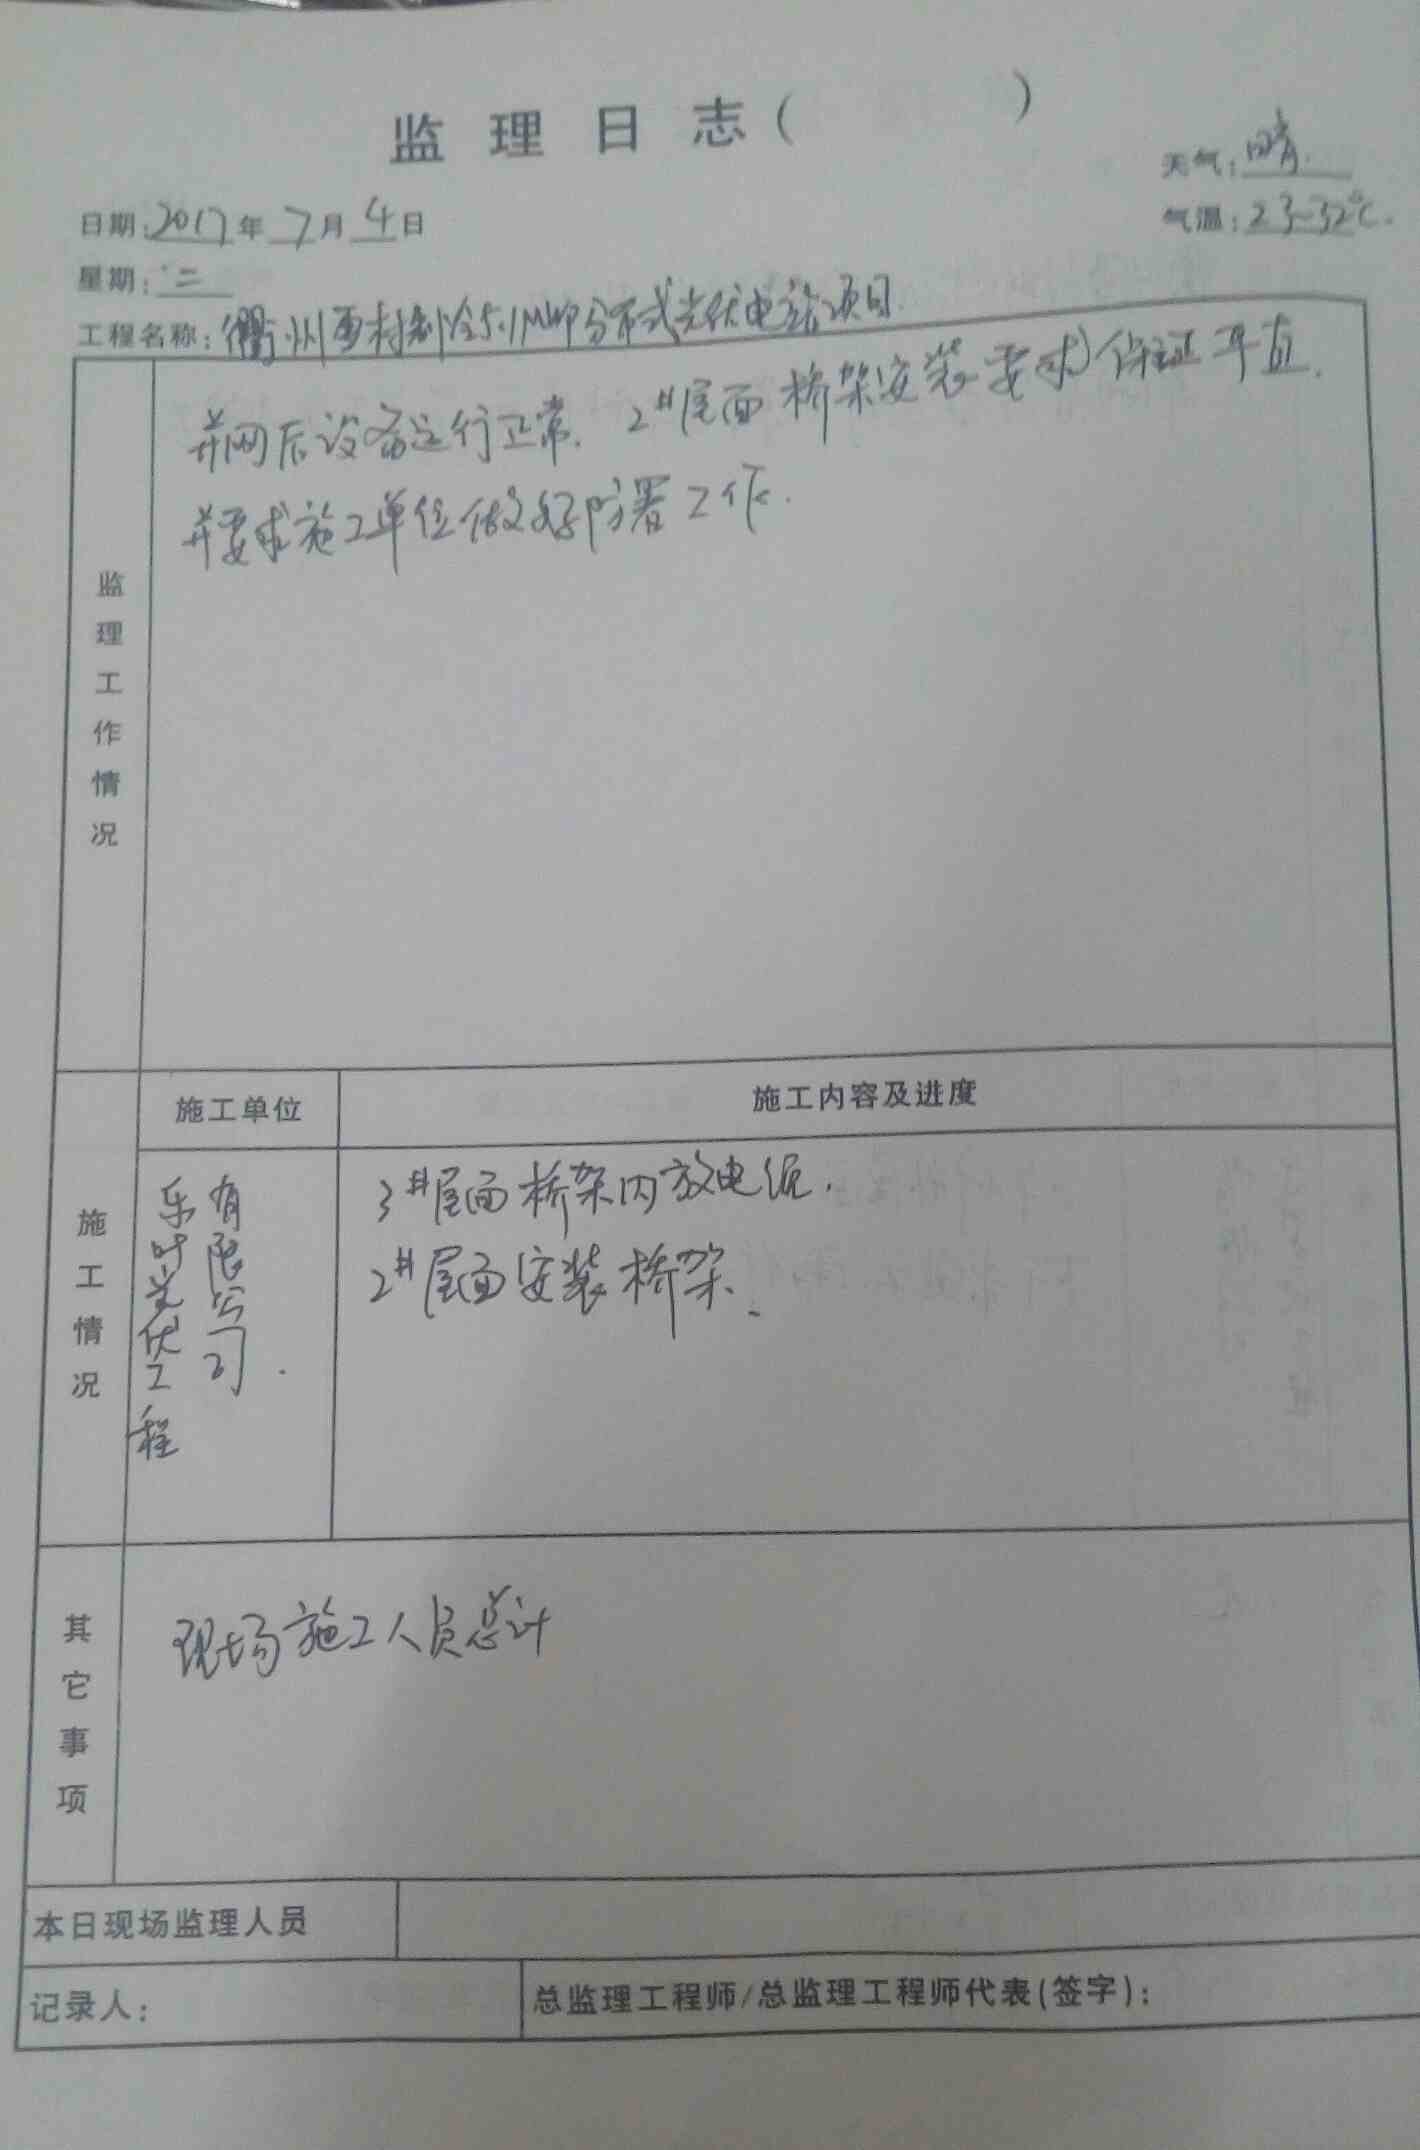 监理日志（ ）
天气：晴.
日期：2017年7月4日
气温：23~32℃.
星期：二
工程名称：衢州西村制冷5.1MWP分布式光伏电站项目.
监理工作情况
并网后设备运行正常. 2#屋面桥架安装要求保证平直.
并要求施工单位做好防署工作.
施工情况
施工单位
施工内容及进度
乐叶光伏工程
有限公司.
3#屋面桥架内放电缆.
2#屋面安装桥架.
其它事项
现场施工人员总计
本日现场监理人员
记录人：
总监理工程师/总监理工程师代表(签字)：